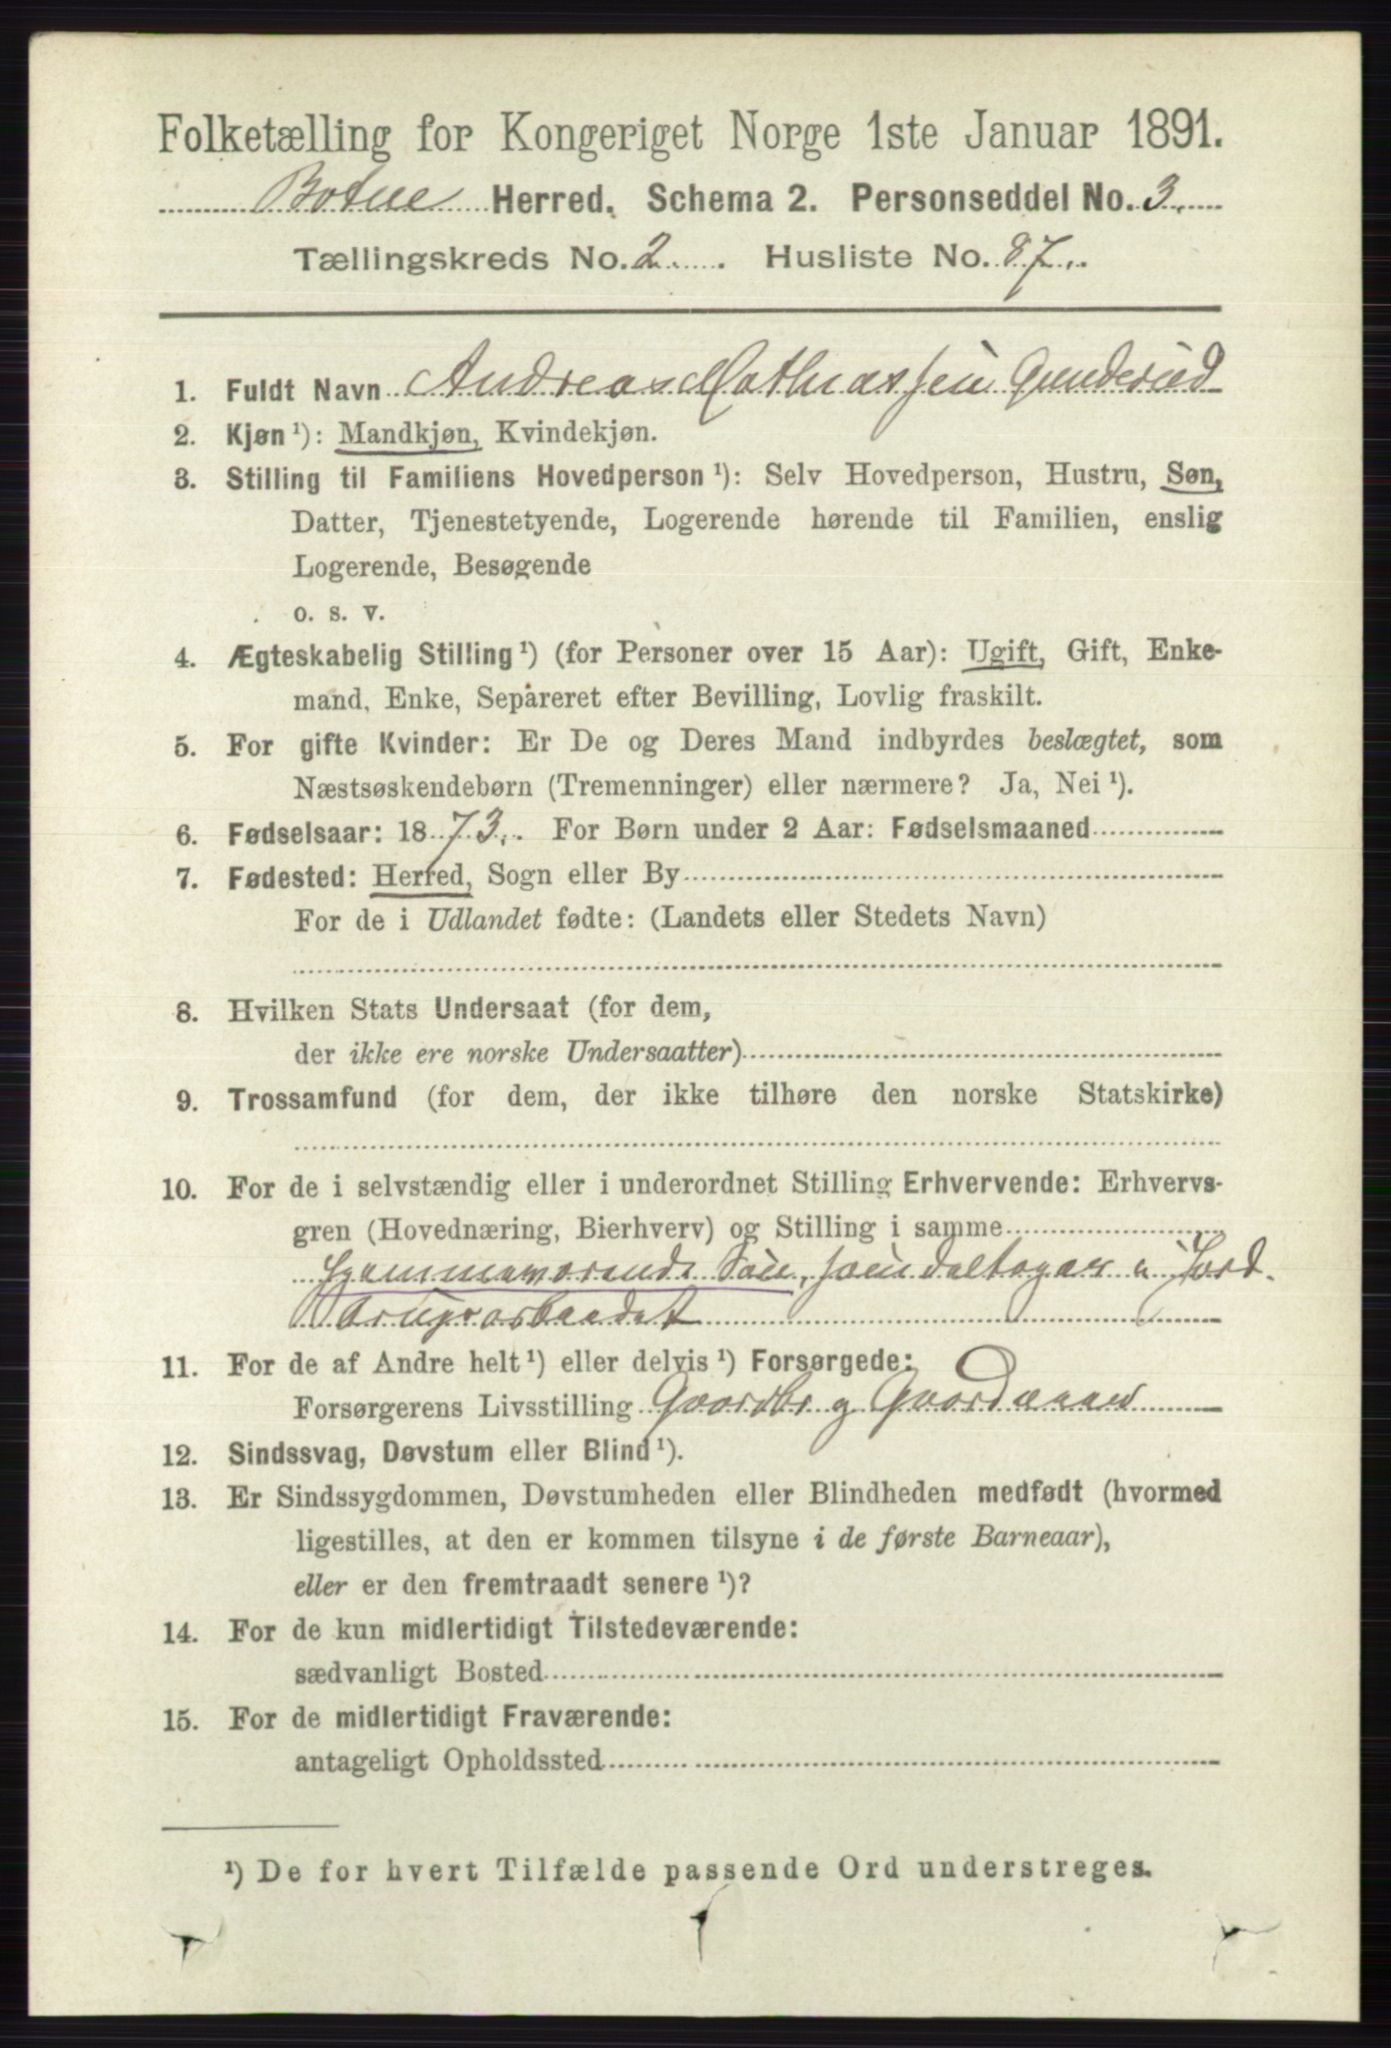 Folketælling for Kongeriget Norge 1ste Januar 1891.
Botne Herred. Schema 2. Personseddel No. 3.
Tællingskreds No. 2. Husliste No. 87.
1. Fuldt Navn Andreas Mathiassen Gunderud
2. Kjøn ¹): Mandkjøn, Kvindekjøn.
3. Stilling til Familiens Hovedperson ¹): Selv Hovedperson, Hustru, Søn,
Datter, Tjenestetyende, Logerende hørende til Familien, enslig
Logerende, Besøgende
o. s. v.
4. Ægteskabelig Stilling ¹) (for Personer over 15 Aar): Ugift, Gift, Enke-
mand, Enke, Separeret efter Bevilling, Lovlig fraskilt.
5. For gifte Kvinder: Er De og Deres Mand indbyrdes beslægtet, som
Næstsøskendebørn (Tremenninger) eller nærmere? Ja, Nei ¹).
6. Fødselsaar: 1873. For Børn under 2 Aar: Fødselsmaaned
7. Fødested: Herred, Sogn eller By
For de i Udlandet fødte: (Landets eller Stedets Navn)
8. Hvilken Stats Undersaat (for dem,
der ikke ere norske Undersaatter)
9. Trossamfund (for dem, der ikke tilhøre den norske Statskirke)
10. For de i selvstændig eller i underordnet Stilling Erhvervende: Erhvervs-
gren (Hovednæring, Bierhverv) og Stilling i samme
hjemmeværende Søn, som deltager i Jord-
brugsarbeidet
11. For de af Andre helt ¹) eller delvis ¹) Forsørgede:
Forsørgerens Livsstilling Gaardbr og
12. Sindssvag, Døvstum eller Blind ¹).
13. Er Sindssygdommen, Døvstumheden eller Blindheden medfødt (hvormed
ligestilles, at den er kommen tilsyne i de første Barneaar),
eller er den fremtraadt senere ¹)?
14. For de kun midlertidigt Tilstedeværende:
sædvanligt Bosted
15. For de midlertidigt Fraværende:
antageligt Opholdssted
¹) De for hvert Tilfælde passende Ord understreges.